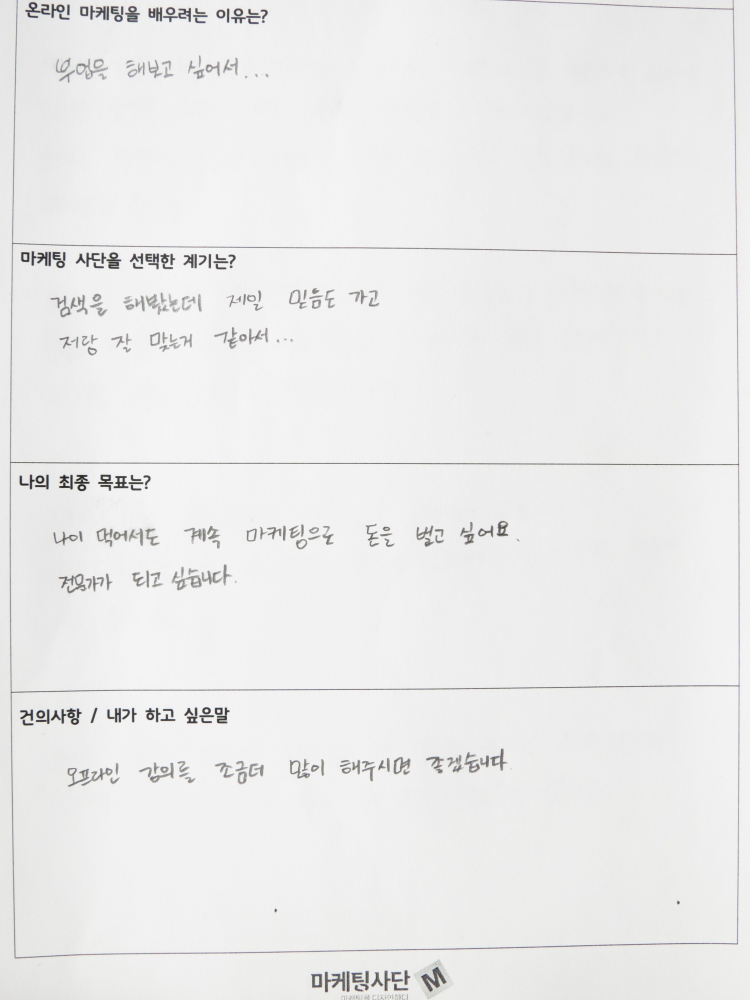 온라인 마케팅을 배우려는 이유는?
부업을 해보고 싶어서...
마케팅 사단을 선택한 계기는?
검색을 해봤는데 제일 믿음도 가고
저랑 잘 맞는거 같아서...
나의 최종 목표는?
나이 먹어서도 계속 마케팅으로 돈을 벌고 싶어요.
전문가가 되고 싶습니다.
건의사항 / 내가 하고 싶은말
오프라인 강의를 조금더 많이 해주시면 좋겠습니다
마케팅사단 M